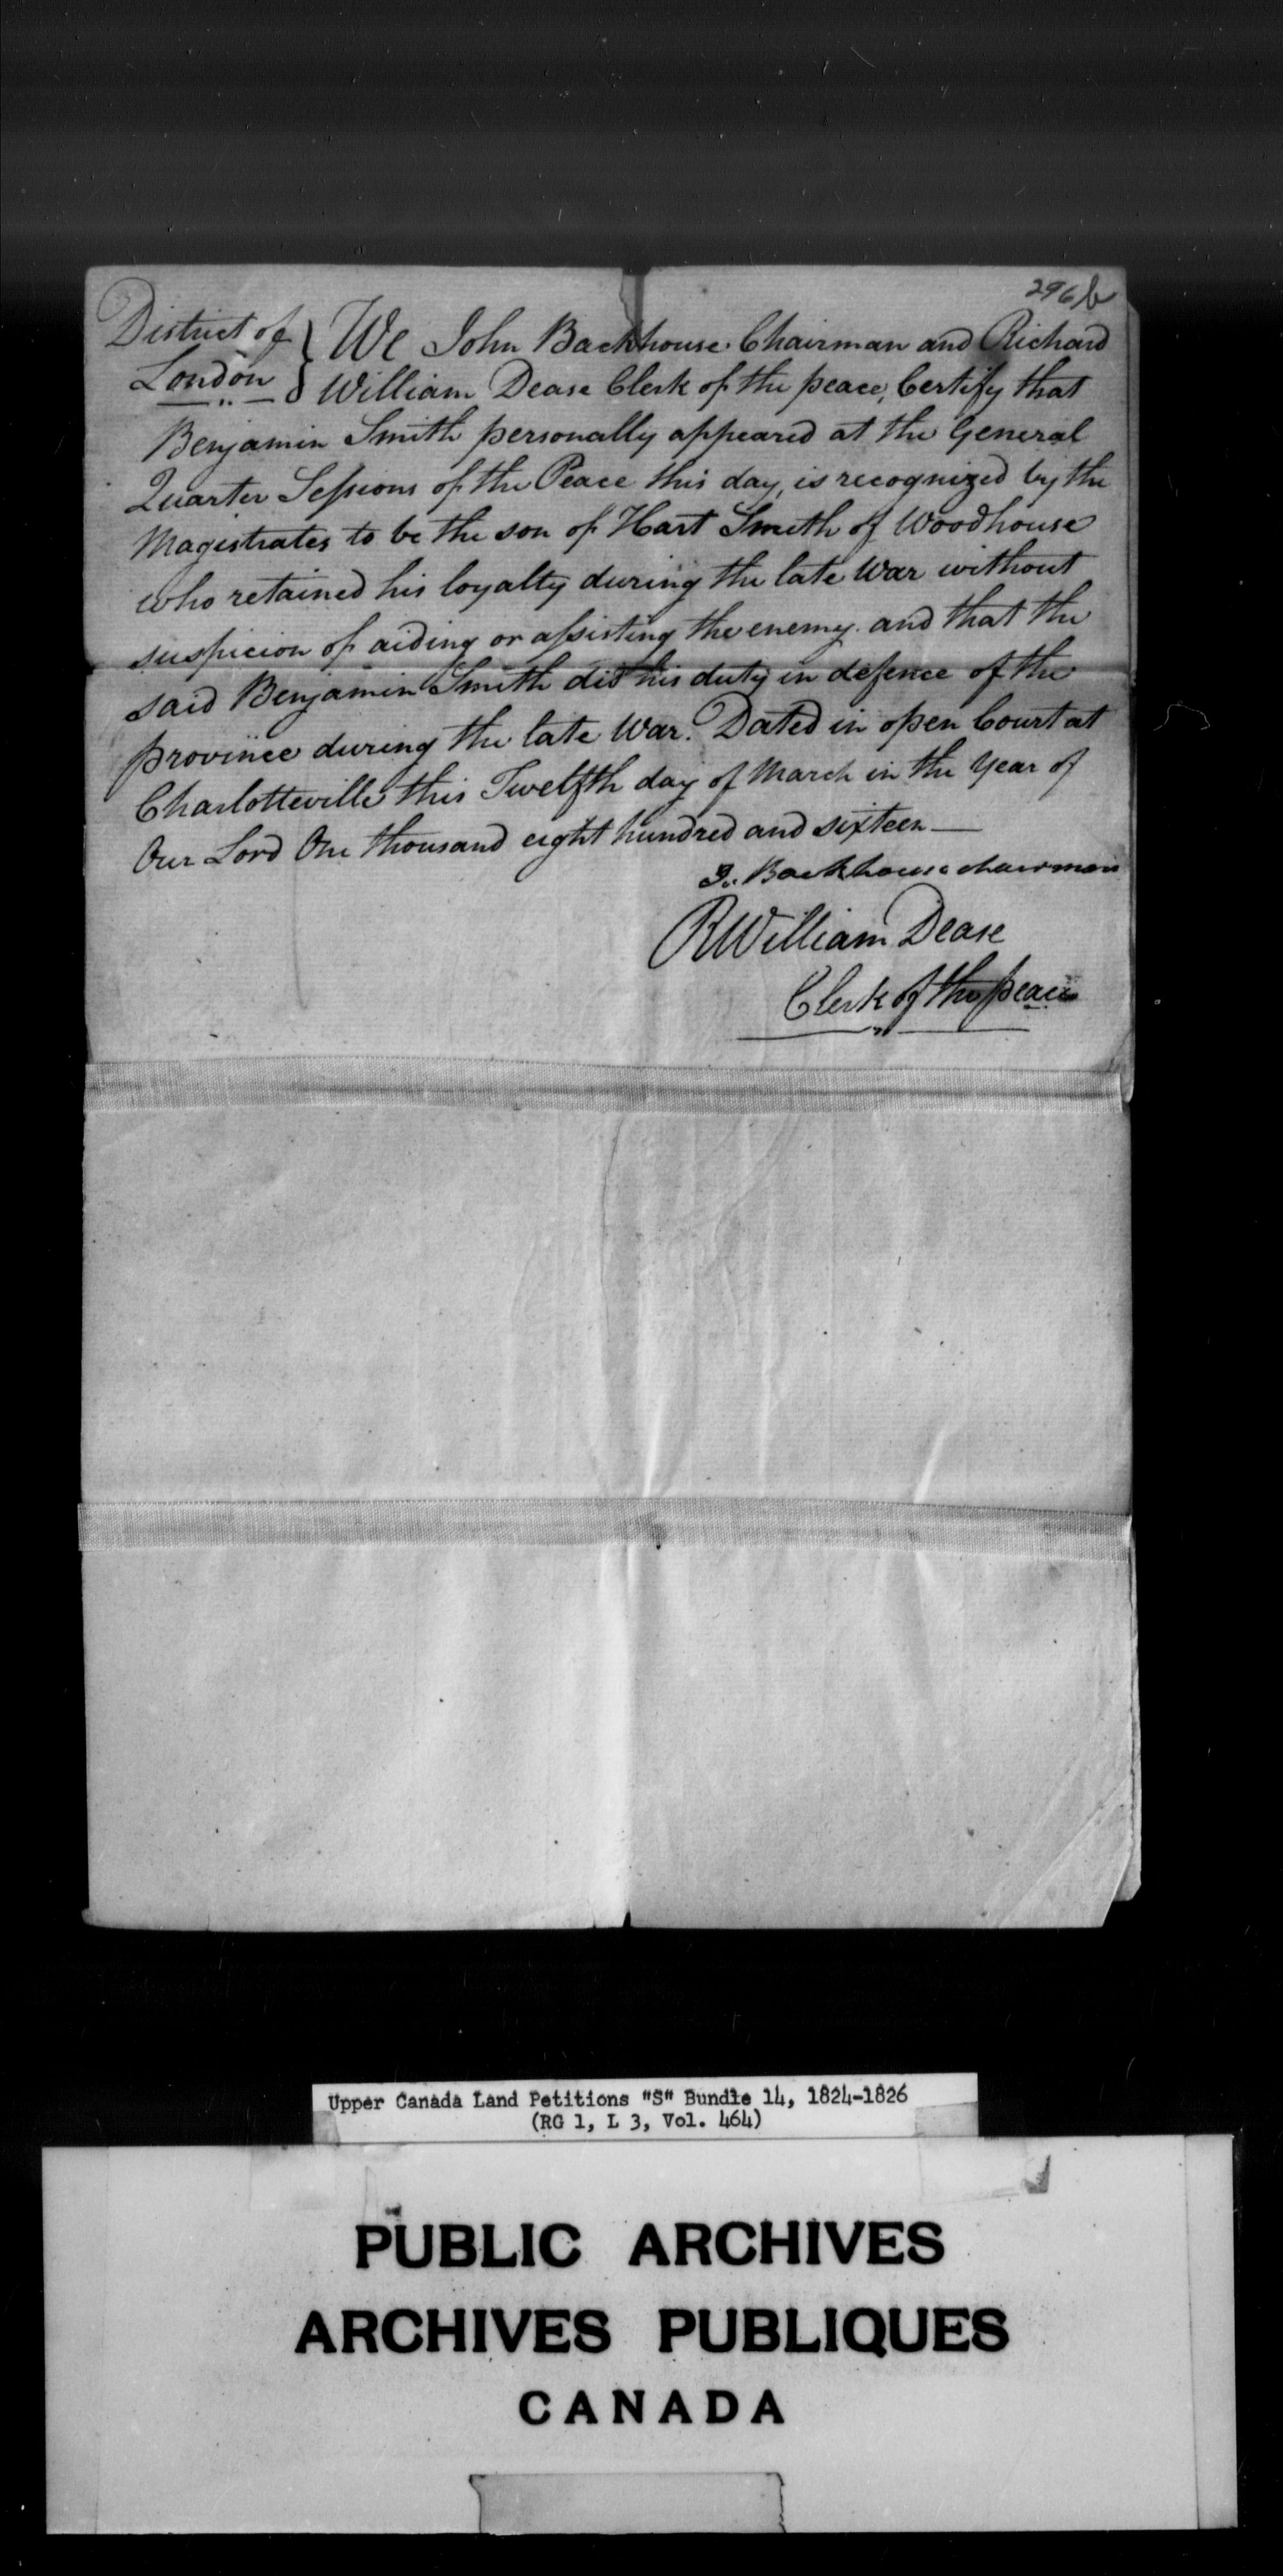 296b
District of } We John Backhouse Chairman and Richard
London } William Dease Clerk of the peace, Certify that
Benjamin Smith personally appeared at the General
Quarter Sessions of the Peace this day, is recognized by the
Magistrates to be the son of Hart Smith of Woodhouse
who retained his loyalty during the late War without
suspicion of aiding or assisting the enemy. and that the
said Benjamin Smith did his duty in defence of the
province during the late War. Dated in open Court at
Charlotteville this Twelfth day of March in the Year of
Our Lord One thousand eight hundred and sixteen—
J. Backhouse chairman
RWilliam Dease
Clerk of the peace
Upper Canada Land Petitions "S" Bundle 14, 1824-1826
(RG 1, L 3, Vol. 464)
PUBLIC ARCHIVES
ARCHIVES PUBLIQUES
CANADA